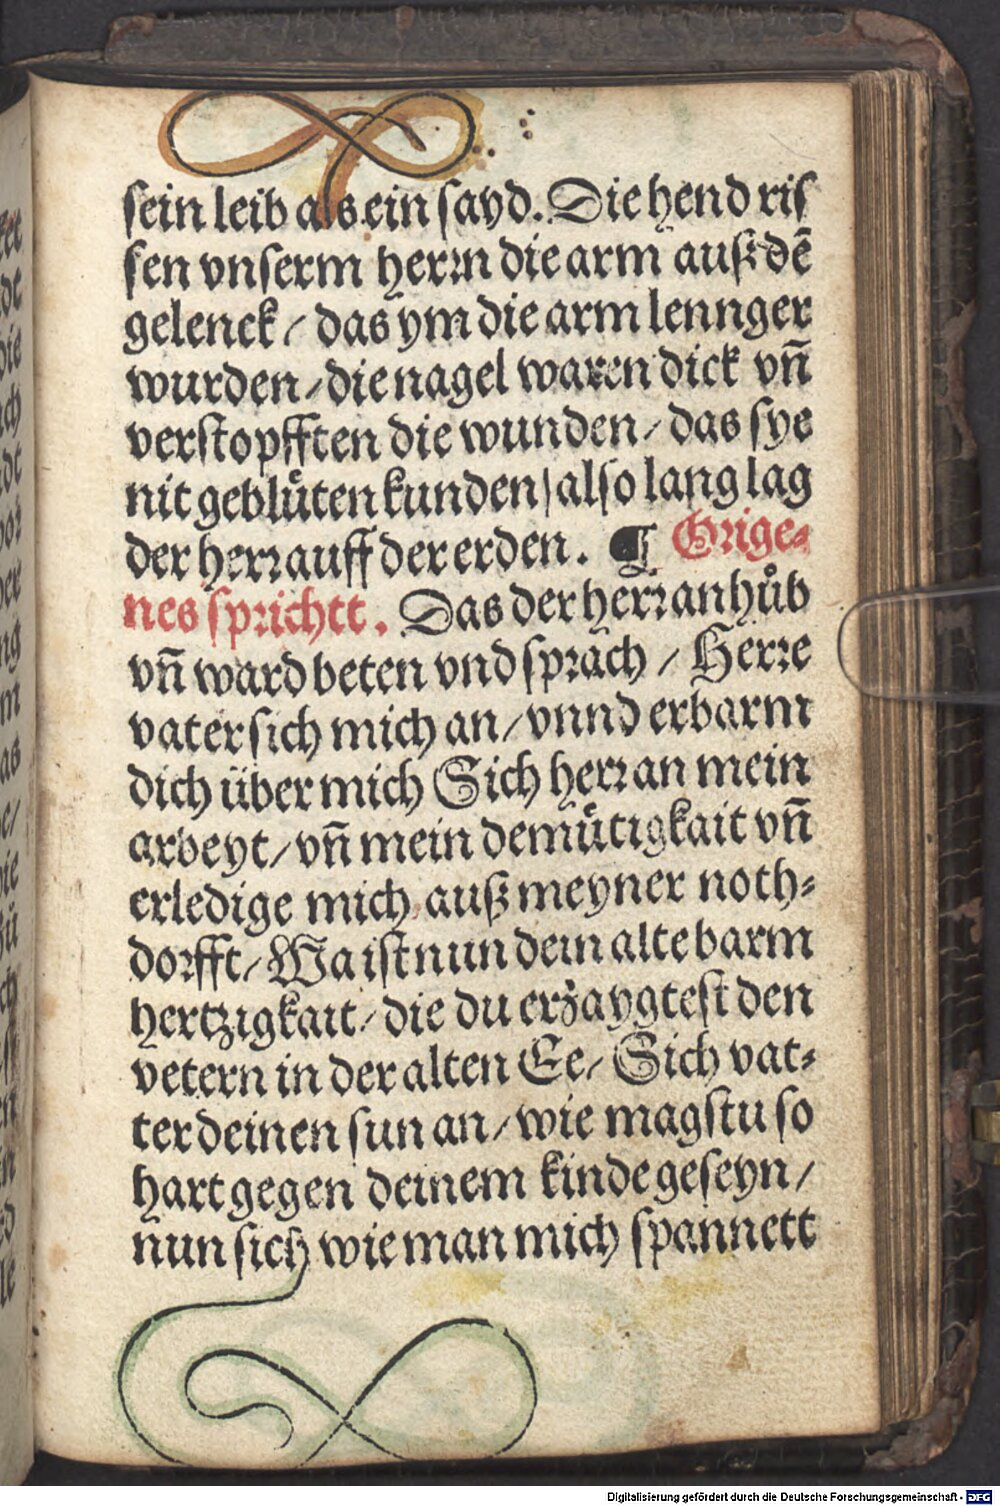 sein leib als ein sayd. Die hend ris
sen vnserm herrn die arm auß dē
gelenck / das ym die arm lennger
wurden / die nagel waren dick vn̄
verstopfften die wunden / das sye
nit geblüten kunden / also lang lag
der herr auff der erden. ¶ Orige-
nes sprichtt. Das der herr anhůb
vn̄ ward beten vnd sprach / Herre
vater sich mich an / vnnd erbarm
dich über mich Sich herr an mein
arbeyt / vn̄ mein demütigkait vn̄
erledige mich auß meyner noth-
dorfft / Wa ist nun dein alte barm
hertzigkait / die du erzaygtest den
vetern in der alten Ee / Sich vat-
ter deinen sun an / wie magstu so
hart gegen deinem kinde geseyn /
nun sich wie man mich spannett
Digitalisierung gefördert durch die Deutsche Forschungsgemeinschaft - DFG